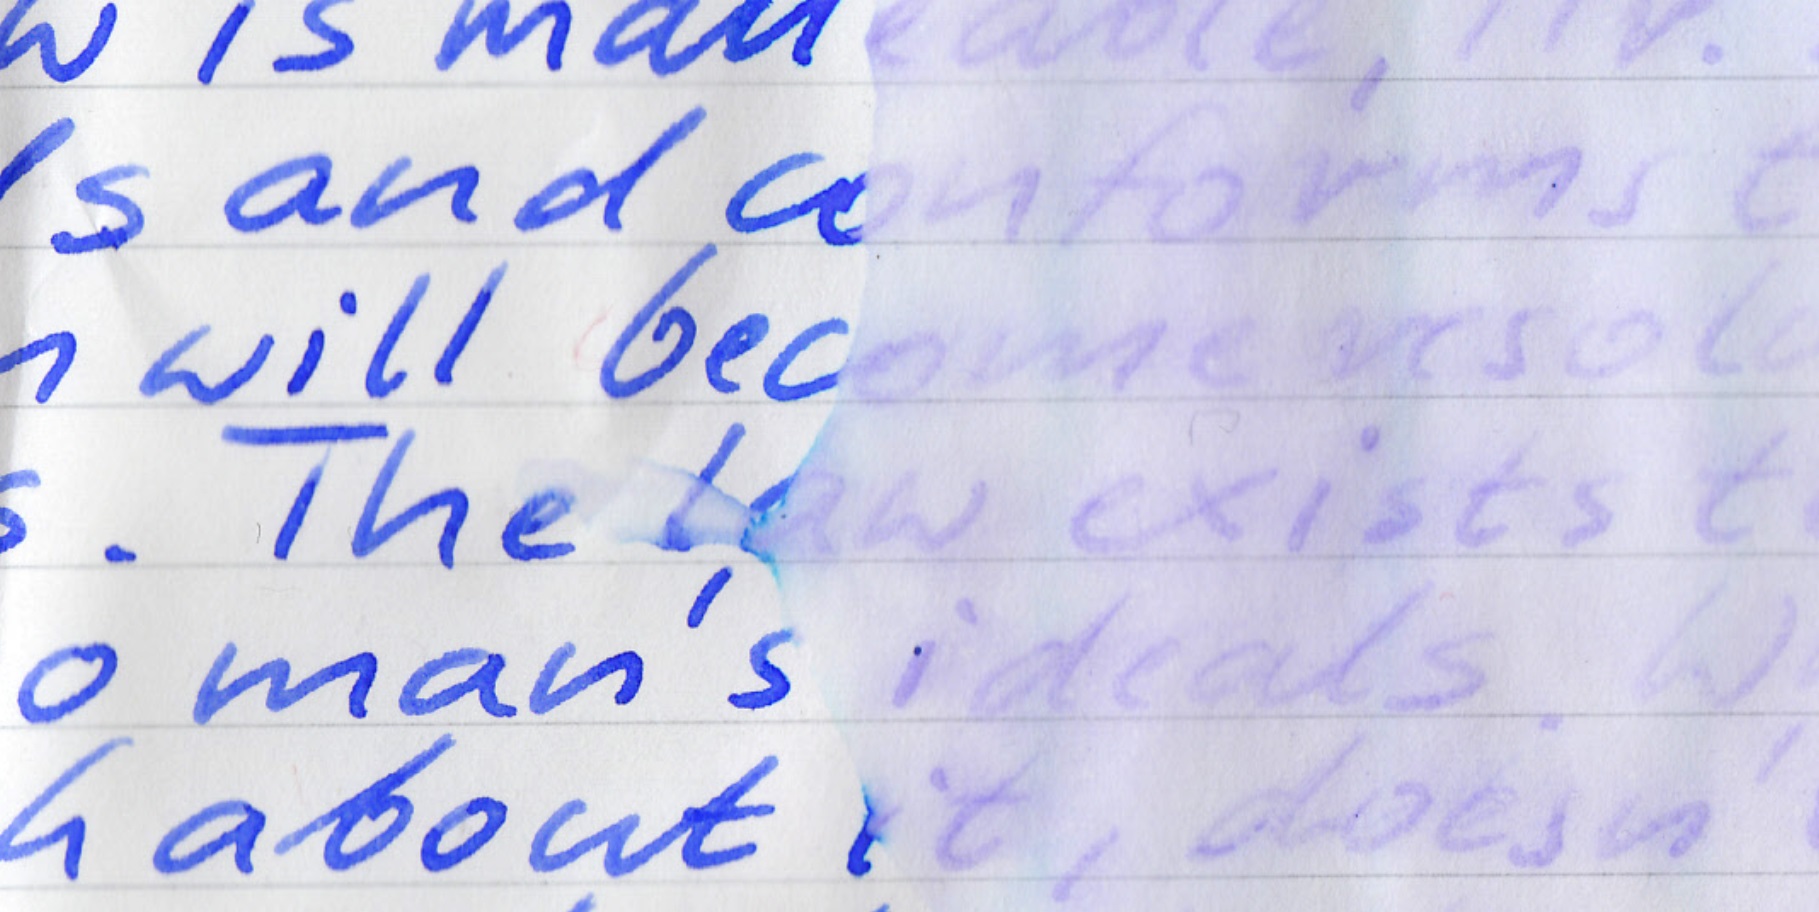 w is malleable, Mr.
's and conforms t
n will become resolu
s. The law exists t
o man's ideals. W
h about it, doesn'